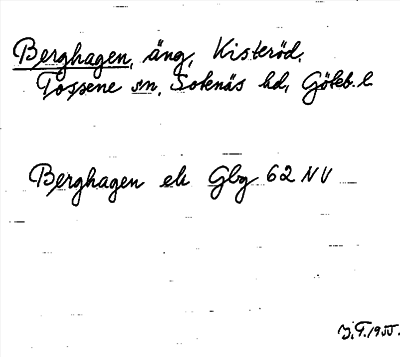 Berghagen, äng, Kisteröd,
Tossene sn, Sotenäs hd, Göteb. l
Berghagen ek Gbg 62 NV
1955.